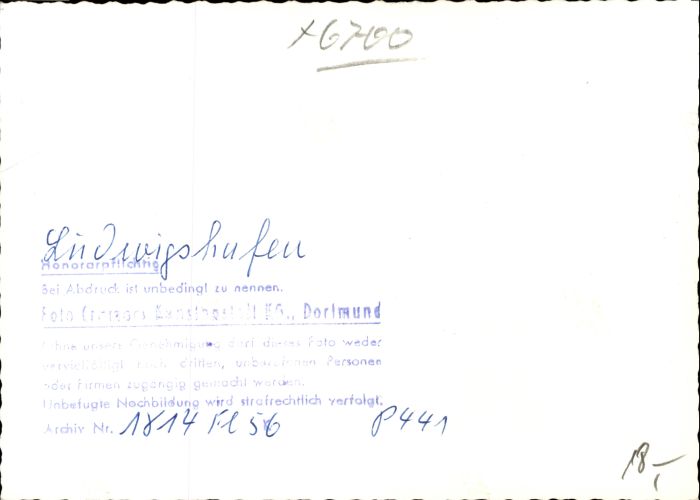 x6700
Ludwigshafen
Honorarpflichtig
Bei Abdruck ist unbedingt zu nennen.
Foto Cramers Kunstanstalt KG., Dortmund
Ohne unsere Genehmigung darf dieses Foto weder
vervielfältigt noch dritten, unberufenen Personen
oder Firmen zugängig gemacht werden.
Unbefugte Nachbildung wird strafrechtlich verfolgt.
Archiv Nr. 1814 Fl 56 P441
18,-